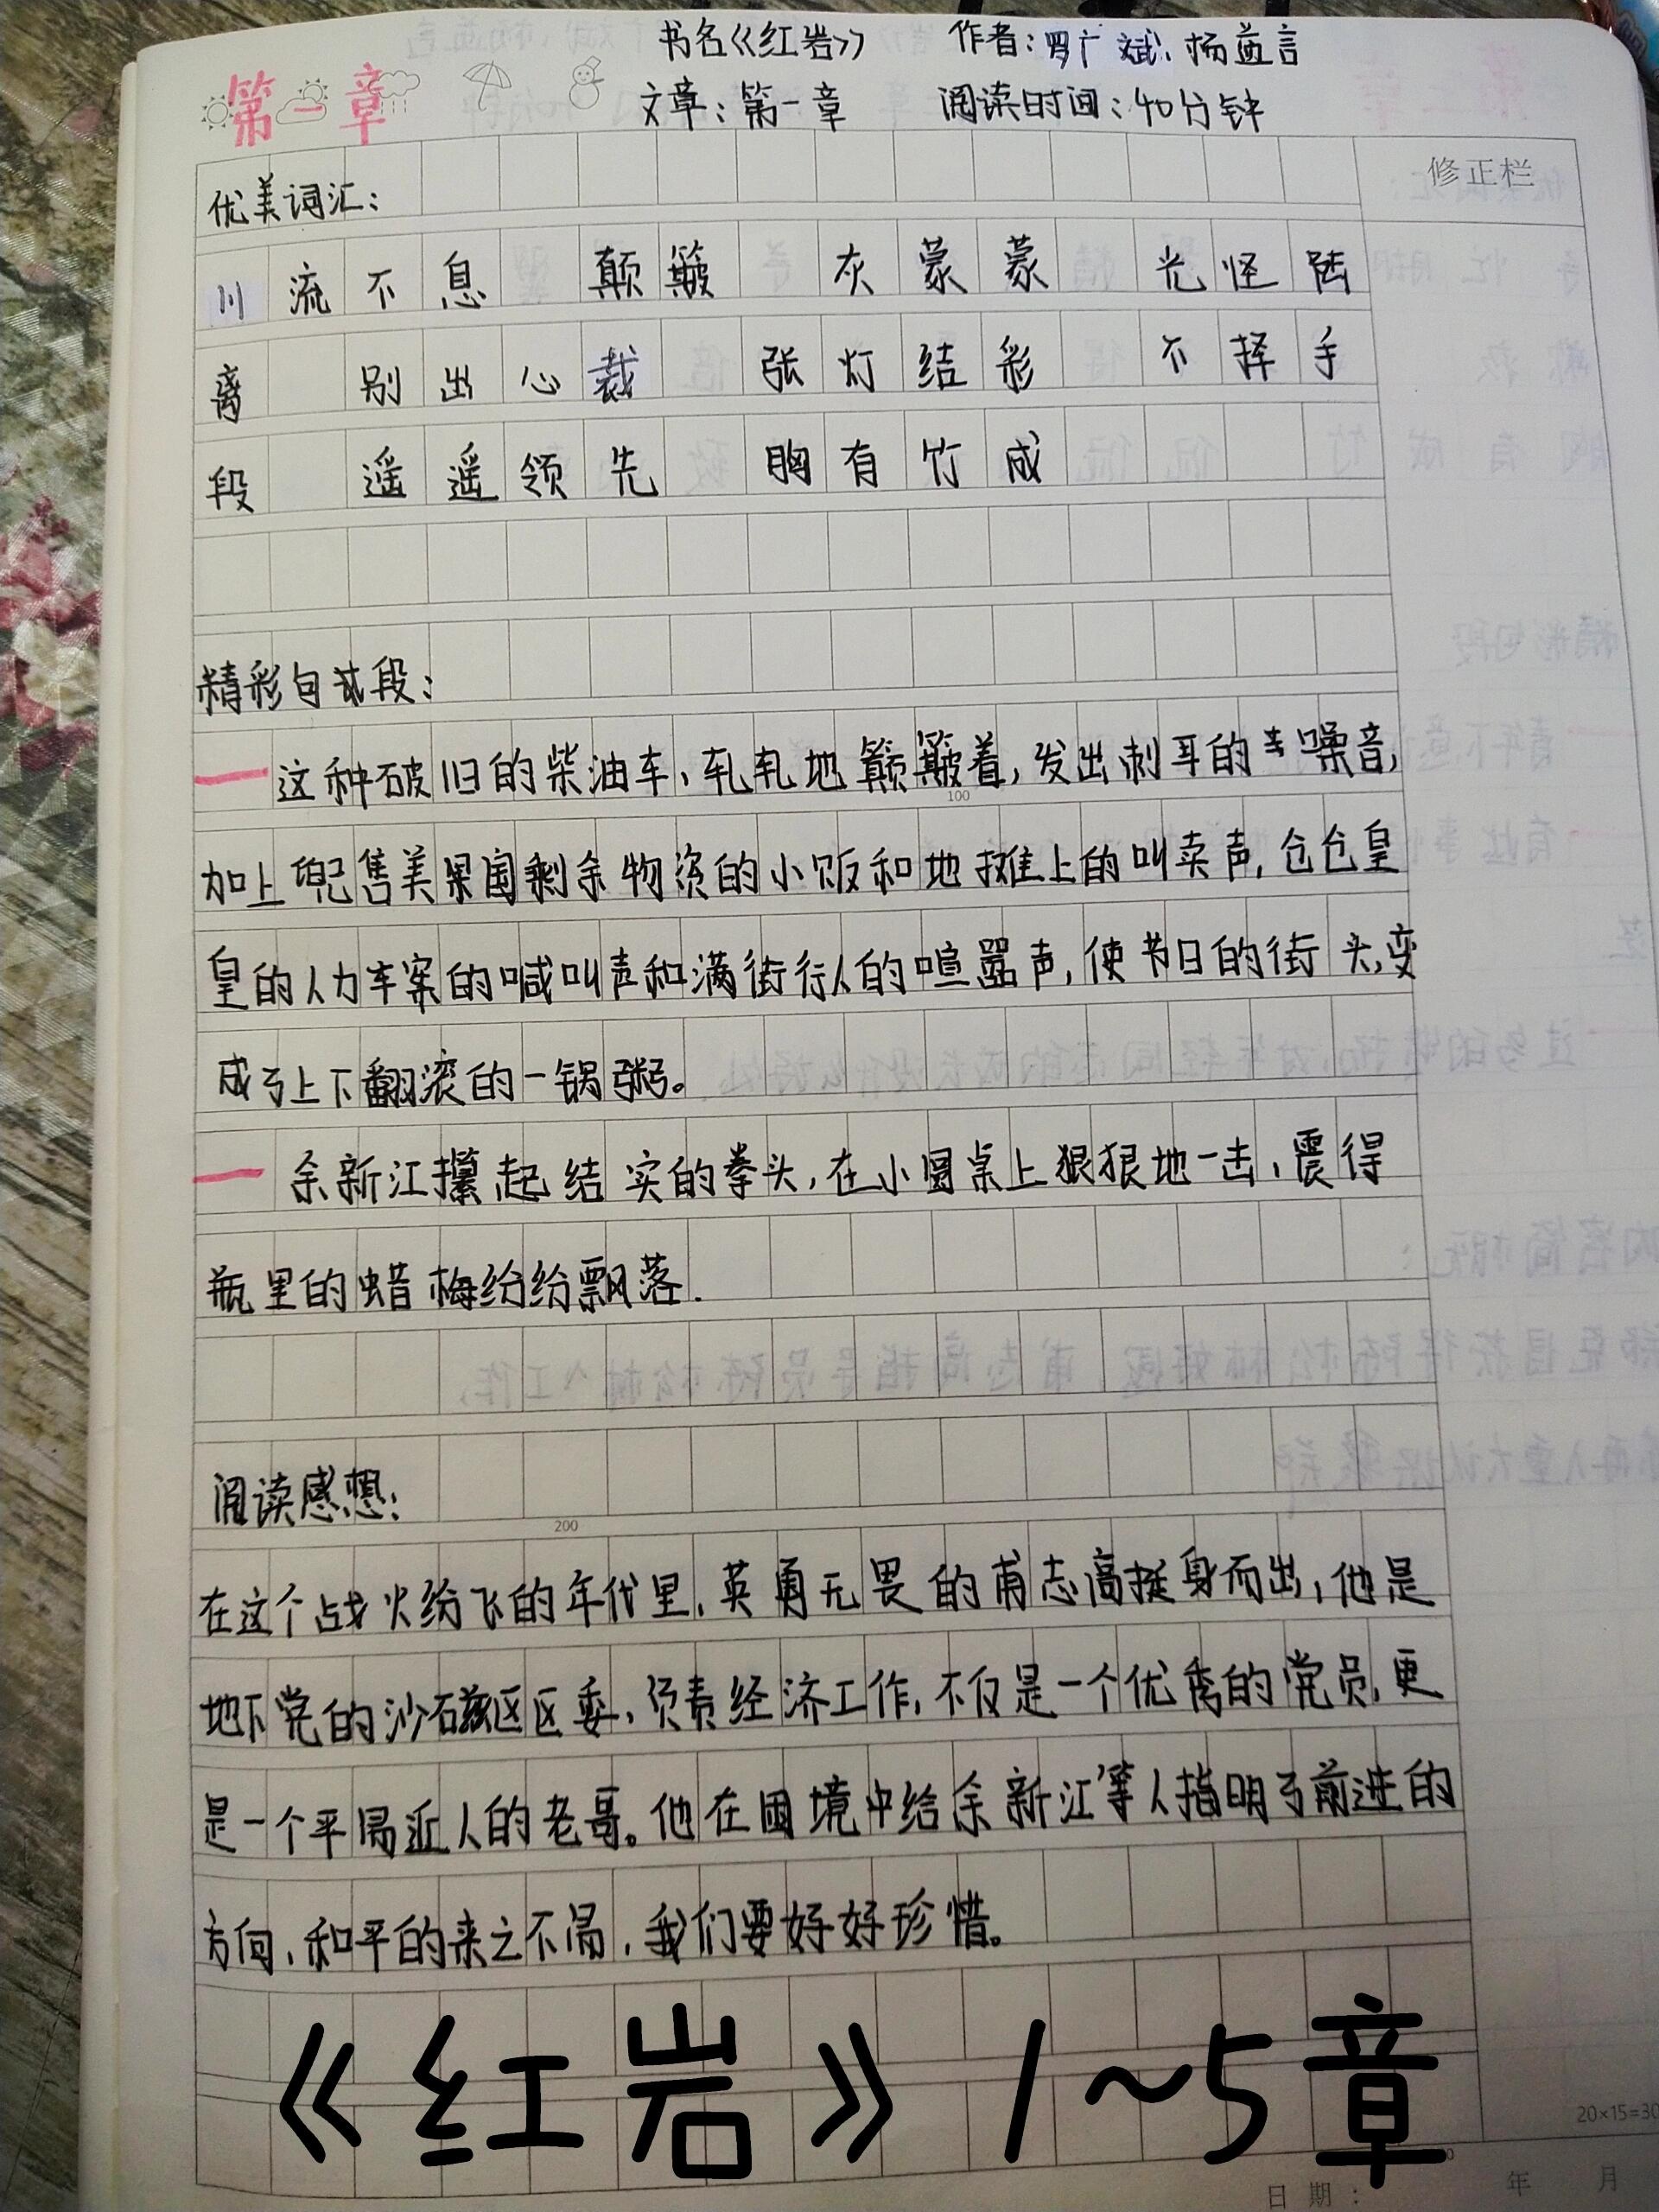 书名《红岩》 作者：罗广斌、杨益言
第一章
文章：第一章 阅读时间：40分钟
修正栏
优美词汇：
川流不息 颠簸 灰蒙蒙 光怪陆
离 别出心裁 张灯结彩 不择手
段 遥遥领先 胸有竹成
精彩句或段：
一这种破旧的柴油车、轧轧地颠簸着,发出刺耳的噪音,
100
加上兜售美国剩余物资的小贩和地摊上的叫卖声,仓仓皇
皇的人力车案的喊叫声和满街行人的喧嚣声,使节日的街头,变
成了上下翻滚的一锅粥。
一余新江攥起结实的拳头,在小圆桌上狠狠地一击,震得
瓶里的蜡梅纷纷飘落.
阅读感想：
200
在这个战火纷飞的年代里,英勇无畏的甫志高挺身而出,他是
地下党的沙磁区区委,负责经济工作,不仅是一个优秀的党员,更
是一个平易近人的老哥。他在困境中给余新江等人指明了前进的
方向,和平的来之不易,我们要好好珍惜。
《红岩》1~5章
20×15=30
日期： 年 月